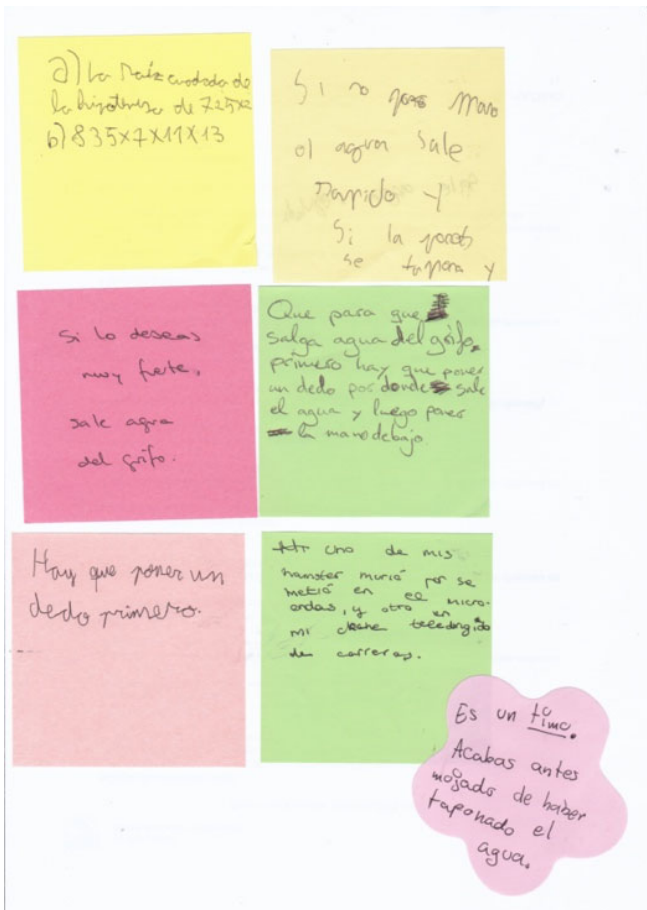 a) La Raíz cuadrada de
la hipotenusa de 725x2
b) 835x7x11x13
Si no pones mano
el agua sale
rapido y
Si la pones
se tapona y
Si lo deseas
muy fuerte,
sale agua
del grifo.
Que para que
salga agua del grifo,
primero hay que poner
un dedo por donde sale
el agua y luego poner
la mano debajo.
Hay que poner un
dedo primero.
uno de mis
hamster murió por se
metió en el micro-
ondas, y otro en
mi teledirigido
de carreras.
Es un timo.
Acabas antes
mojado de haber
taponado el
agua.